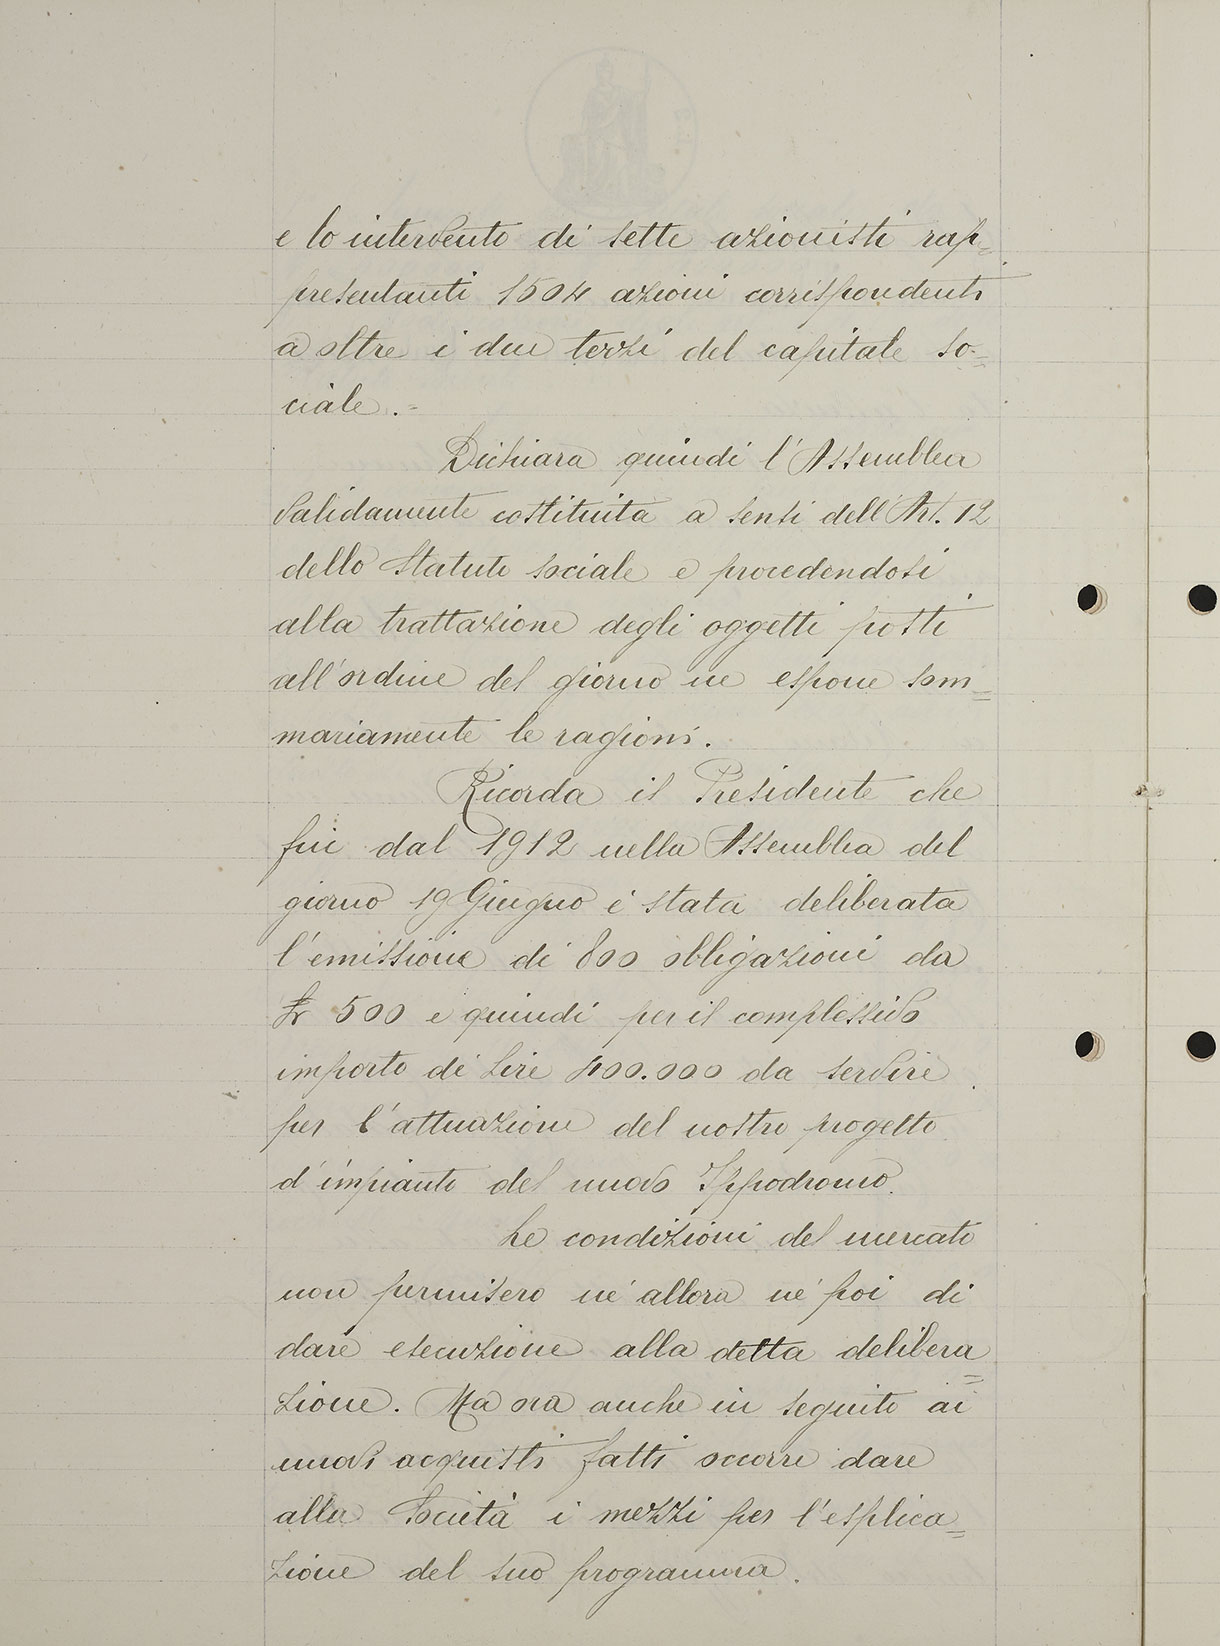 e lo intervento di sette azionisti rap=
presentanti 1504 azioni corrispondenti
a oltre i due terzi del capitale so=
ciale.=
Dichiara quindi l'Assemblea
validamente costituita a sensi dell'Art. 12
dello Statuto sociale e procedendosi
alla trattazione degli oggetti posti
all'ordine del giorno ne espone som=
mariamente le ragioni.
Ricorda il Presidente che
fin dal 1912 nella Assemblea del
giorno 19 Giugno è stata deliberata
l'emissione di 800 obligazioni da
£ 500 e quindi per il complessivo
importo di Lire 400.000 da servire
per l'attuazione del nostro progetto
d'impianto del nuovo Ippodromo.
Le condizioni del mercato
non permisero nè allora nè poi di
dare esecuzione alla detta delibera=
zione. Ma ora anche in seguito ai
nuovi acquisti fatti occorre dare
alla Società i mezzi per l'esplica=
zione del suo programma.